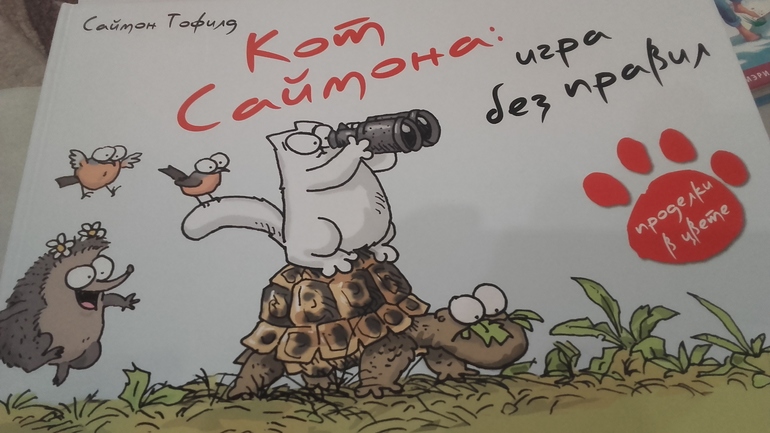 Саймон Тофилд
Кот
Саймона:
игра
без правил
проделки
в цвете